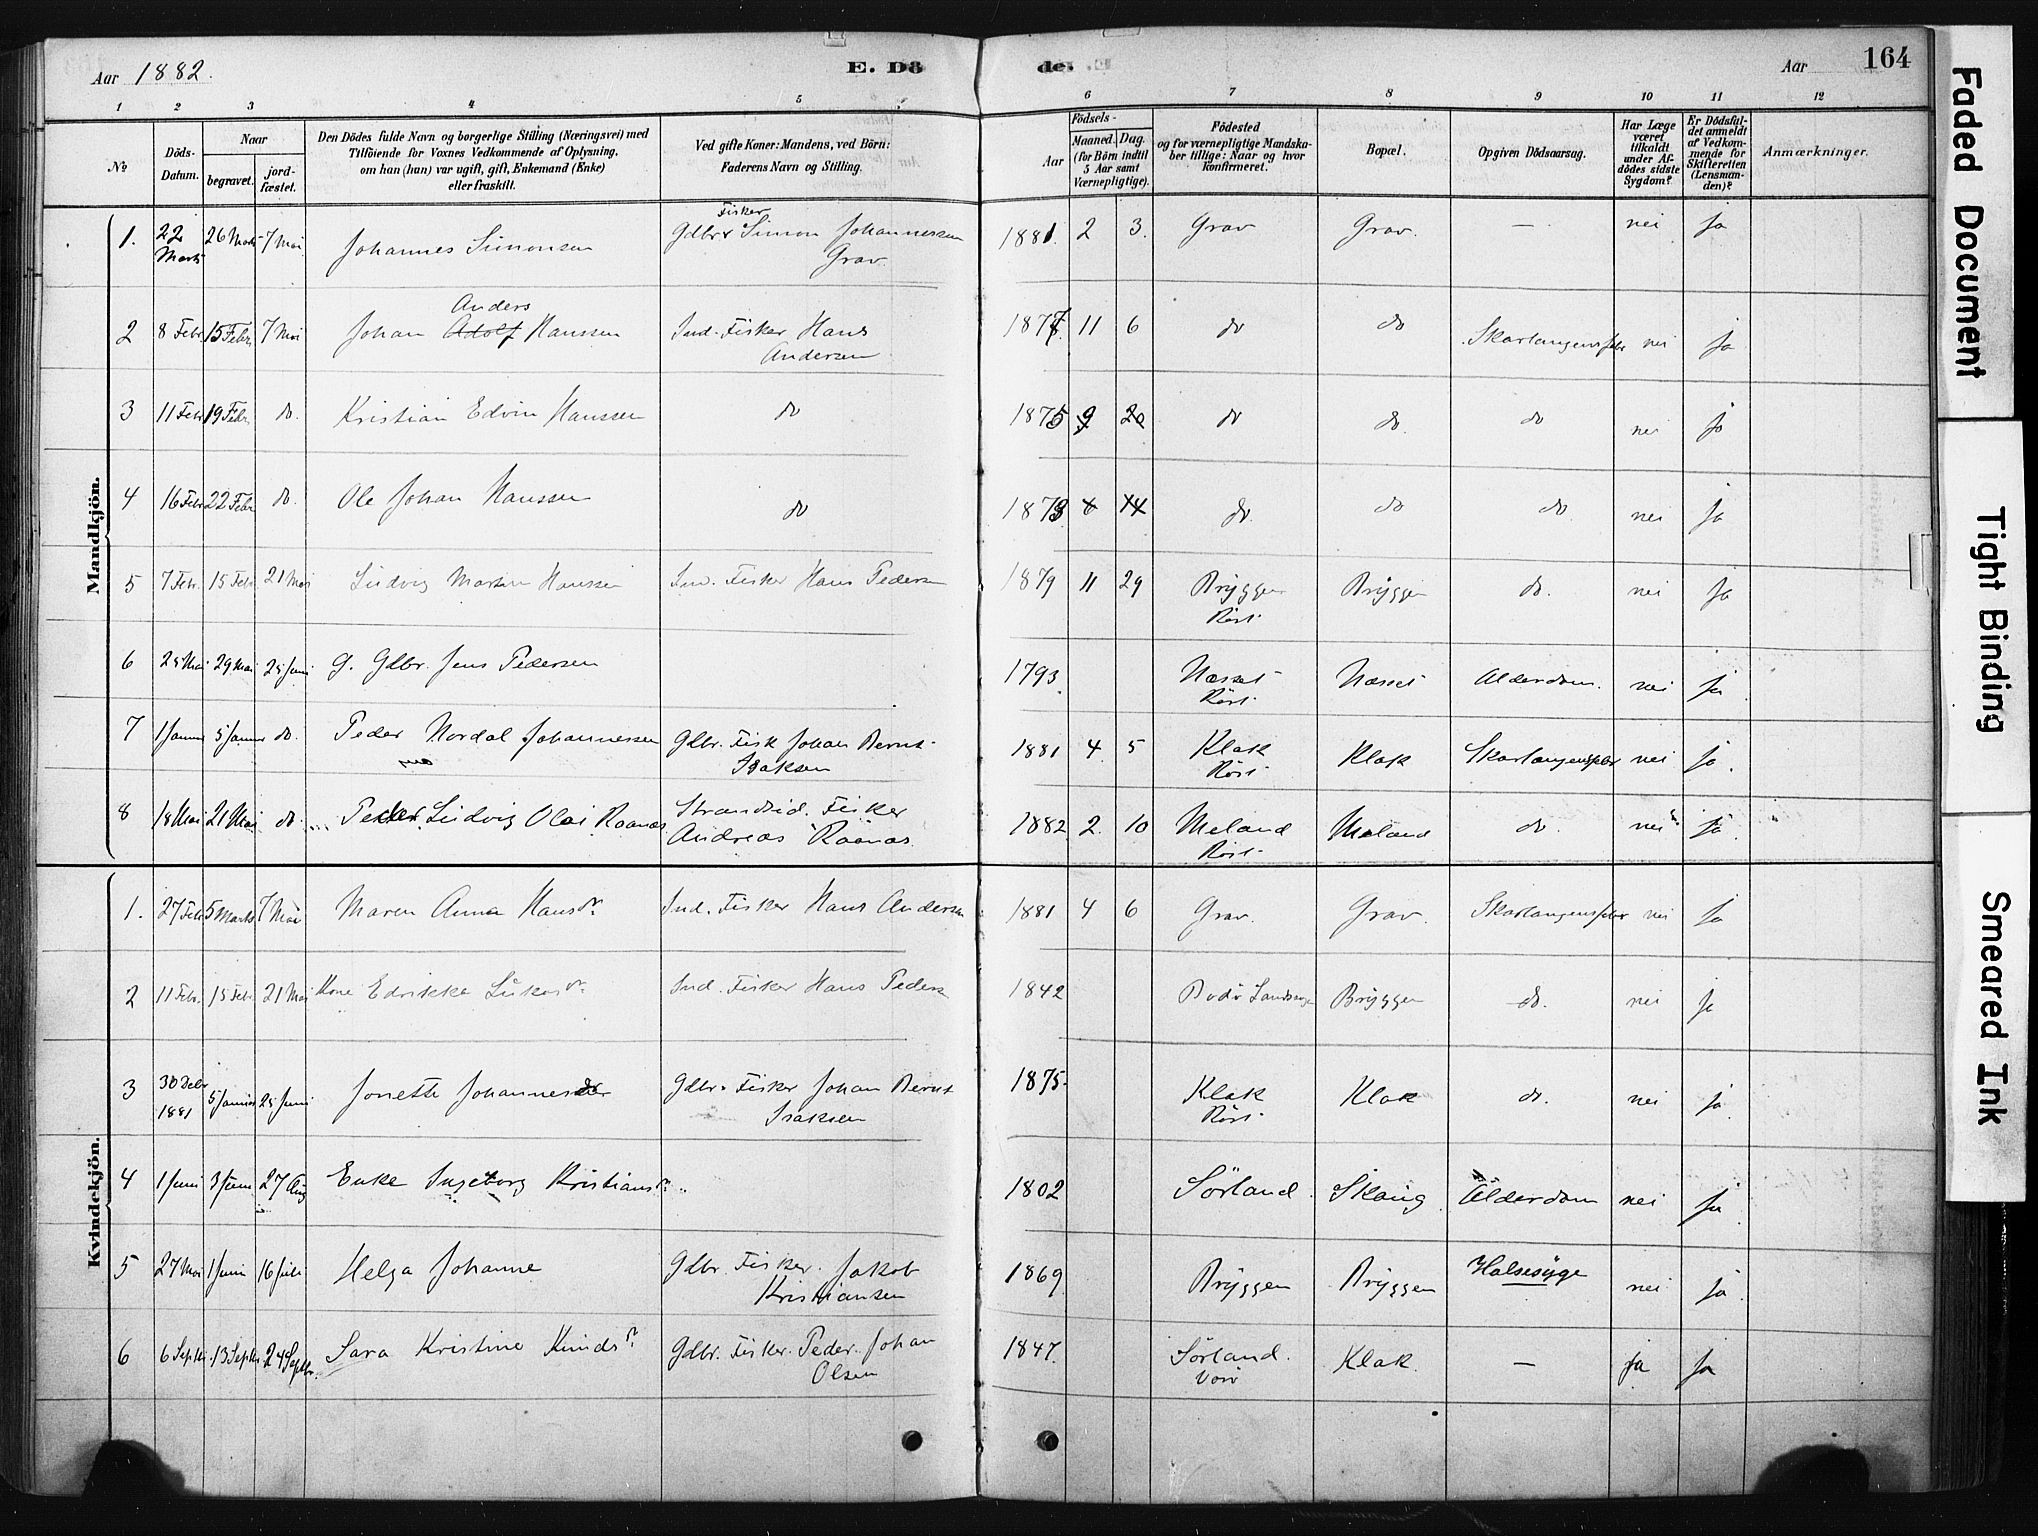 Aar 1882.
E. Dö
de.
Aar
164
1 2 3 4 5 6 7 8 9 10 11 12
No
Döds-Datum.
Naar
begravet.
jord-fæstet.
Den Dödes fulde Navn og borgerlige Stilling (Næringsvei) med
Tilföiende for Voxnes Vedkommende af Oplysning,
om han (hun) var ugift, gift, Enkemand (Enke)
eller fraskilt.
Ved gifte Koner: Mandens, ved Börn:
Faderens Navn og Stilling.
Födsels-
Aar
Maaned. Dag.
(for Börn indtil
5 Aar samt
Værnepligtige).
Födested
og for værnepligtige Mandska-
ber tillige: Naar og hvor
konfirmeret.
Bopæl.
Opgiven Dödsaarsag.
Har Læge
været
tilkaldt
under Af-
dödes sidste
Sygdom?
Er Dödsfal-
det anmeldt
af Vedkom-
mende for
Skifteretten
(Lensman-
den)?
Anmærkninger.
Mandkjön.
1. 22 Marts 26 Marts 7 Mai Johannes Simonsen Gdbr. Fisker Simon Johannessen Grav 1881. 2 3. Grav Grav. — nei ja
2 8 Febr 15 Febr. 7 Mai Johan Adolf Anders Hanssen Ind. Fisker Hans Andersen 1877 11 6 do do Skarlagensfebr nei ja
3 11 Febr 19 Febr. do. Kristian Edvin Hanssen do 1875 9 20 do do. do nei ja
4 16 Febr 22 Febr do. Ole Johan Hanssen do 1873 6 14 do. do do. nei ja
5 7 Febr. 15 Febr 21 Mai Ludvig Martin Hanssen Ind. Fisker Hans Pedersen 1879 11 29 Bryggen Röst. Bryggen do. nei ja
6 25 Mai 29 Mai 25 Juni G. Gdbr. Jens Pedersen 1793. Næsset Röst. Næsset Alderdom. nei ja
7 1 Januar 5 Januar do. Peder Nordal Johannessen Gdbr. Fisk Johan Bernt Isaksen 1881 4 5 Klak Röst Klak Skarlagensfebr nei ja.
8 18 Mai 21 Mai do Peder Ludvig Olai Raanas Strandsid. Fisker Andreas Raanas. 1882 2. 10 Meland Röst. Meland do. nei ja
Kvindekjön.
1. 27 Feb 5 Marts 7 Mai Maren Anna Hansdr. Ind. Fisker Hans Andersen 1881 4 6 Grav. Grav. Skarlagensfebr nei ja
2 11 Febr. 15 Febr. 21 Mai Kone Edrikke Lukasdr. Ind. Fisker Hans Peders 1842 Bodö Landsogn Bryggen do. nei ja
3 30 Debr 1881 5 Januar 25 Juni Jonette Johannesdr Gdbr. Fisker Johan Bernt Isaksen 1875. Klak Röst. Klak do. nei ja
4 1 Juni 3 Juni 27 Aug Enke Ingeborg Kristiansdr. 1802 Sörland. Skaug Alderdom nei ja
5 27 Mai 1 Juni 16 Juli Helga Johanne Gdbr. Fisker. Jakob Kristiansen 1869 Bryggen Bryggen Halsesyge nei ja.
6 6 Septbr. 13 Septbr. 24 Septbr. Sara Kristine Knudsdr. Gdbr. Fisker. Peder Johan Olsen 1847. Sörland. Værö Klak. — ja ja
Faded Document
Tight Binding
Smeared Ink